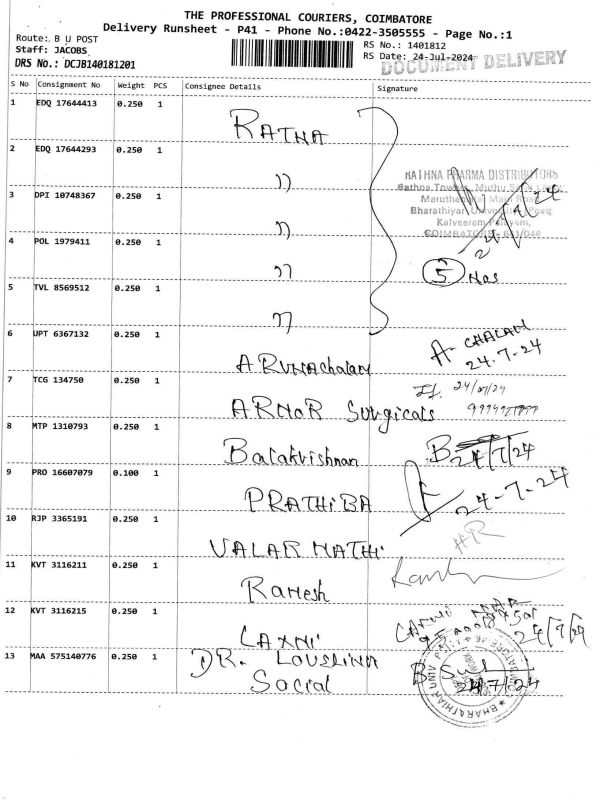 THE PROFESSIONAL COURIERS, COIMBATORE
Delivery Runsheet - P41 - Phone No.:0422-3505555 - Page No.:1
Route: B U POST
Staff: JACOBS
DRS No.: DCJB140181201
RS No.: 1401812
RS Date: 24-Jul-2024
DOCUMENT DELIVERY
S No Consignment No Weight PCS Consignee Details Signature
1 EDQ 17644413 0.250 1 RATNA
2 EDQ 17644293 0.250 1 ))
RATHNA PHARMA DISTRIBUTORS
3 DPI 10748367 0.250 1 ))
Bharathiyar University Post
COIMBATORE - 641046
4 POL 1979411 0.250 1 ))
5 Nos
5 TVL 8569512 0.250 1 ))
6 UPT 6367132 0.250 1 ARUNAchalam A- CHALAM
24-7-24
7 TCG 134750 0.250 1 ARMOR Surgicals 24/07/24
8 MTP 1310793 0.250 1 Balakrishnan B 24/7/24
9 PRO 16607079 0.100 1 PRATHIBA 24-7-24
10 RJP 3365191 0.250 1 VALAR MATHI HR
11 KVT 3116211 0.250 1 Ramesh
12 KVT 3116215 0.250 1 LAXMI
24/7/24
13 MAA 575140776 0.250 1 DR. LOUSLINA
Social
24/7/24